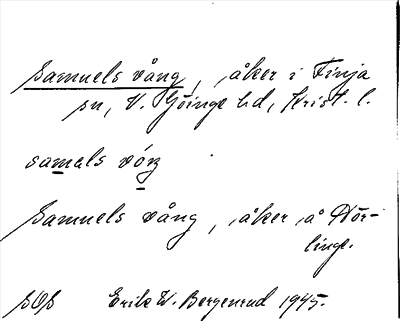 Samuels vång, åker i Finja
sn, V. Göinge hd, Krist. l.
samals vóŋ
Samuels vång, åker å Hör-
linge.
SOS Erik W. Bergenrud 1945.